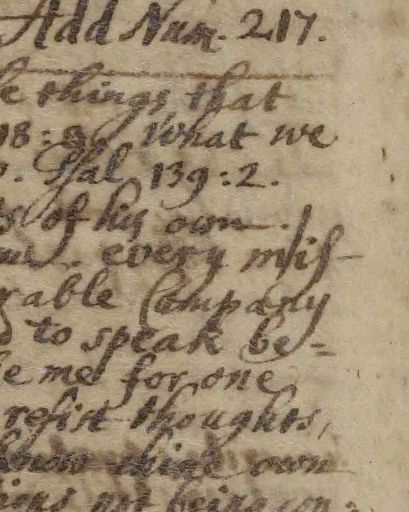 Add Num. 217.
things that
98: What we
Psal 139:2.
of his own.
every mis-
rable Company
to speak be-
me for one
refist thoughts,
know thine own
not being con-